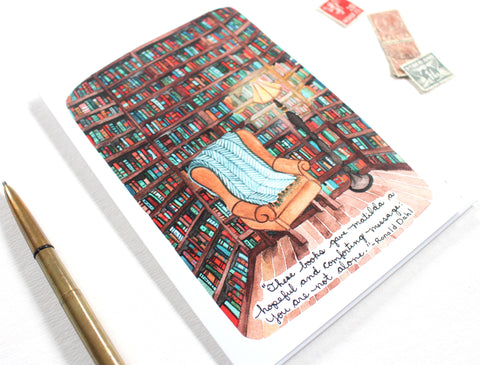 "These books gave matilda a
hopeful and comforting message:
You are not alone." -Roald Dahl